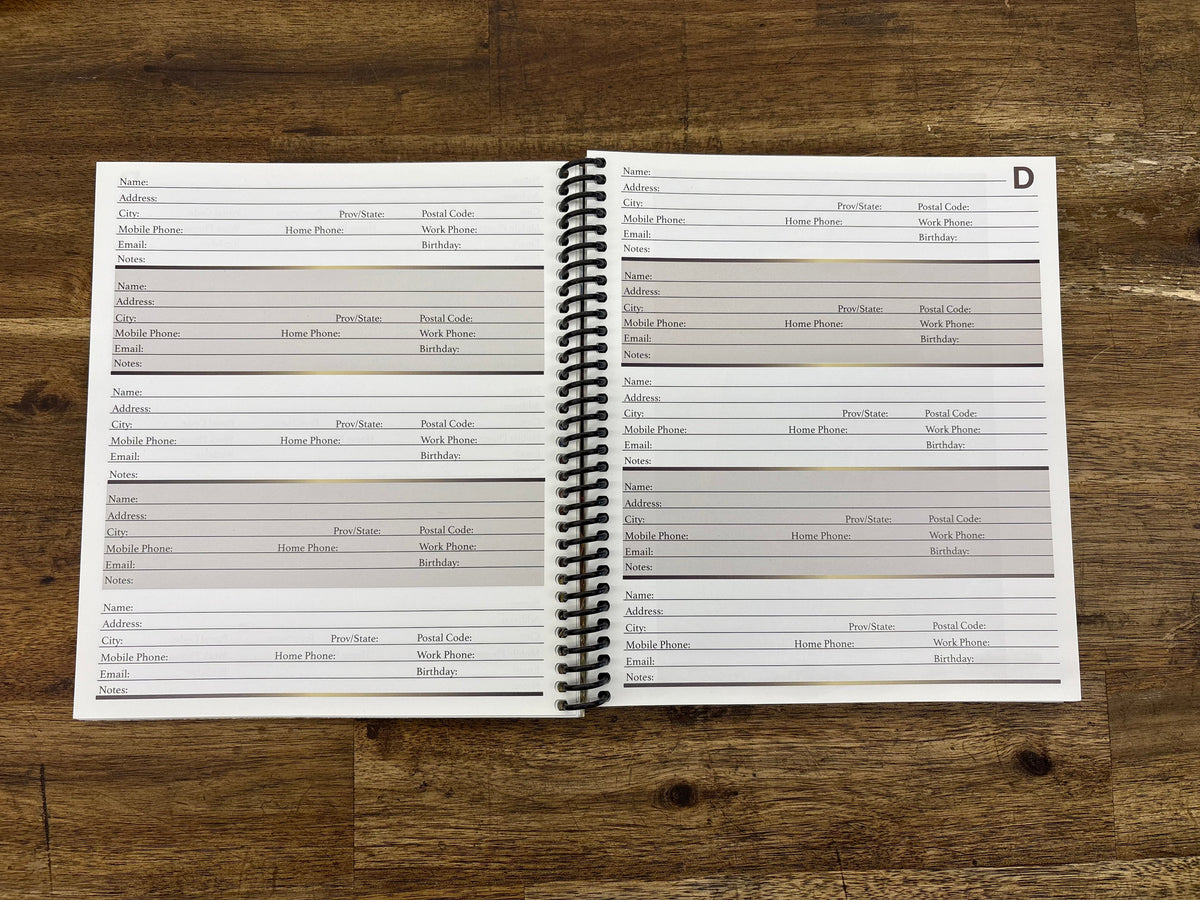 Name:
Address:
City: Prov/State: Postal Code:
Mobile Phone: Home Phone: Work Phone:
Email: Birthday:
Notes:
Name:
Address:
City: Prov/State: Postal Code:
Mobile Phone: Home Phone: Work Phone:
Email: Birthday:
Notes:
Name:
Address:
City: Prov/State: Postal Code:
Mobile Phone: Home Phone: Work Phone:
Email: Birthday:
Notes:
Name:
Address:
City: Prov/State: Postal Code:
Mobile Phone: Home Phone: Work Phone:
Email: Birthday:
Notes:
Name:
Address:
City: Prov/State: Postal Code:
Mobile Phone: Home Phone: Work Phone:
Email: Birthday:
Notes:
Name: D
Address:
City: Prov/State: Postal Code:
Mobile Phone: Home Phone: Work Phone:
Email: Birthday:
Notes:
Name:
Address:
City: Prov/State: Postal Code:
Mobile Phone: Home Phone: Work Phone:
Email: Birthday:
Notes:
Name:
Address:
City: Prov/State: Postal Code:
Mobile Phone: Home Phone: Work Phone:
Email: Birthday:
Notes:
Name:
Address:
City: Prov/State: Postal Code:
Mobile Phone: Home Phone: Work Phone:
Email: Birthday:
Notes:
Name:
Address:
City: Prov/State: Postal Code:
Mobile Phone: Home Phone: Work Phone:
Email: Birthday:
Notes: